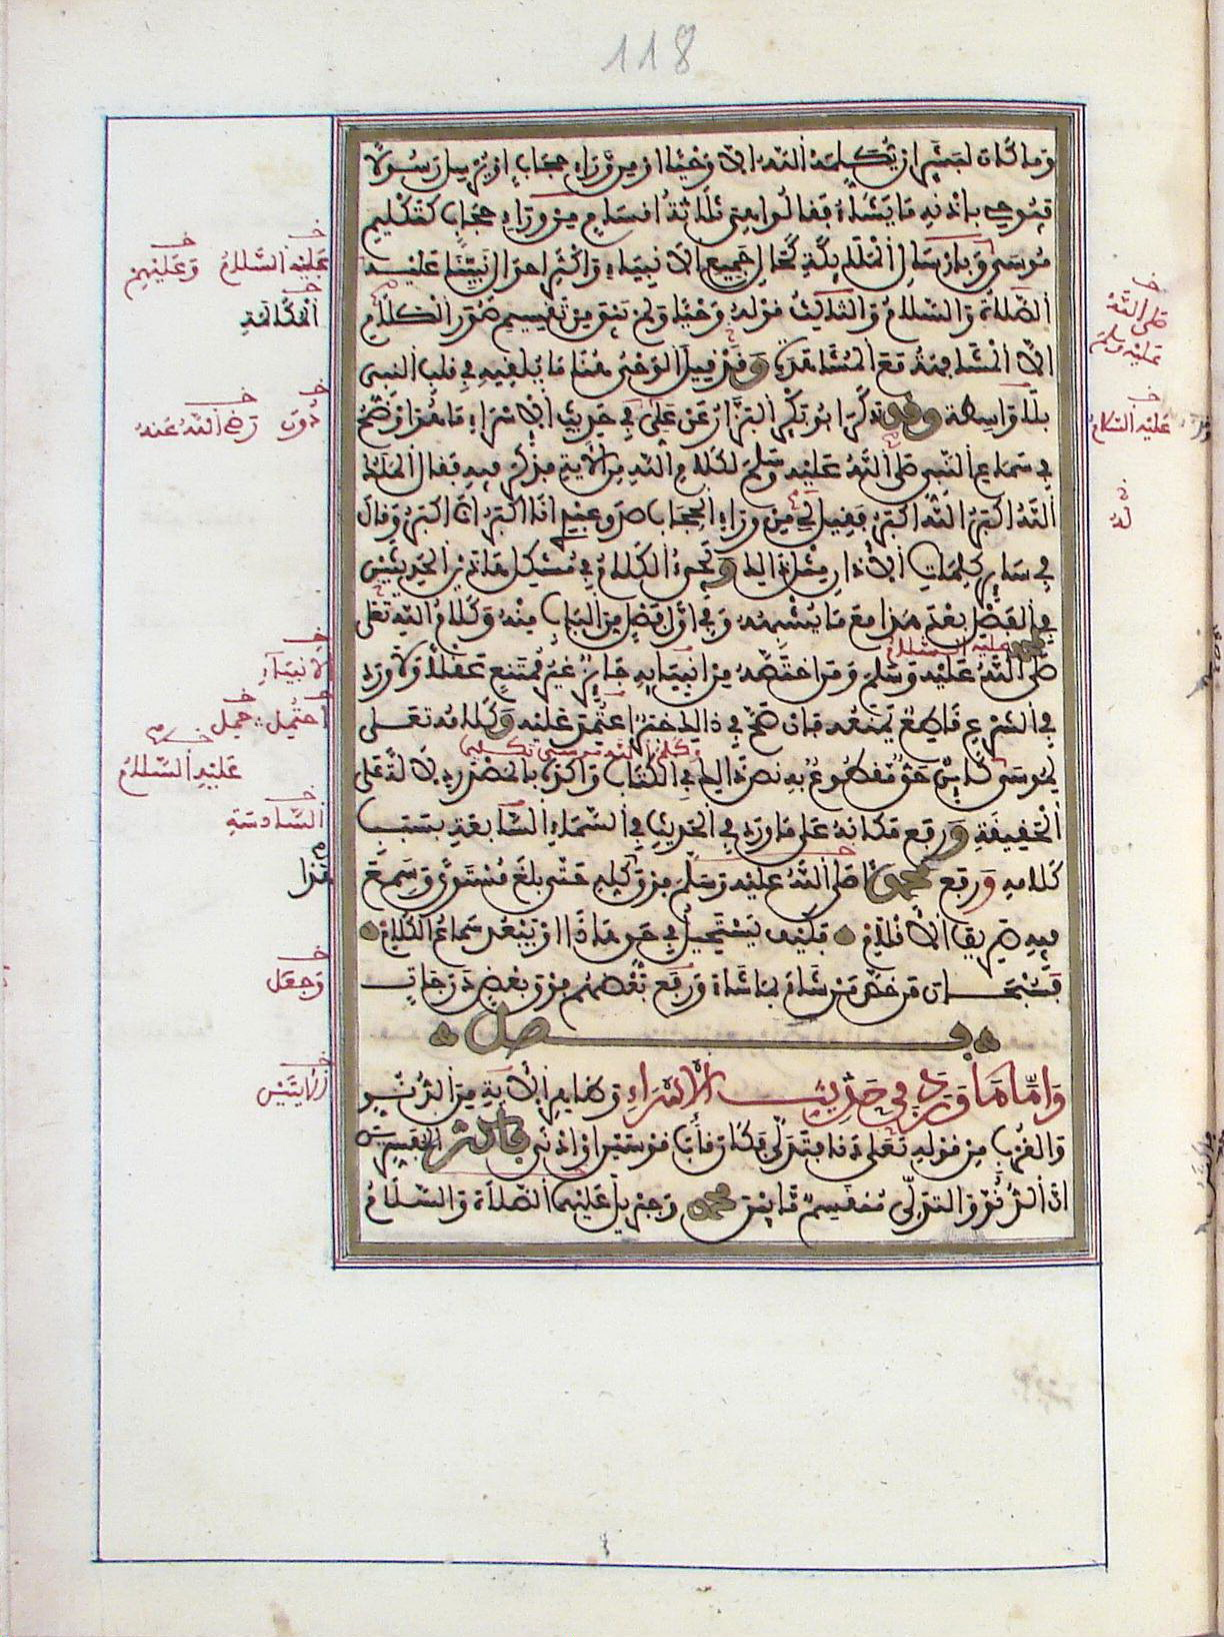 118
وما كان لبشر ان يكلمه الله الا وحيا او من وراء حجاب او يرسل رسولا
فيوحي باذنه ما يشاء فقالوا هي ثلاثة اقسام من وراء حجاب كتكليم
موسى وبارسال الملائكة كحال جميع الانبياء واكثر احوال نبينا عليه
الصلاة والسلام والثالث قوله وحيا ولم يبق من تقسيم صور الكلام
الا المشافهة مع المشاهدة وقد قيل الوحي هنا ما يلقيه في قلب النبي
بلا واسطة وقد ذكر ابو بكر البزار عن علي في حديث الاسراء ما هو اوضح
في سماع النبي صلى الله عليه وسلم لكلام الله من الآية فذكر فيه فقال الملك
الله اكبر الله اكبر فقيل لي من وراء الحجاب صدق عبدي انا اكبر انا اكبر وقال
في سائر كلمات الاذان مثل ذلك ويجيء الكلام في مشكل هاذين الحديثين
في الفصل بعد هذا مع ما يشبهه وفي اول فصل من الباب منه وكلام الله تعلى
محمد صلى الله عليه وسلم ومن اختصه من انبيائه جائز غير ممتنع عقلا ولا ورد
عليه السلام
في الشرع قاطع يمنعه فان صح في ذلك خبر اعتمد عليه وكلامه تعلى
لموسى كائن حق مقطوع به نص ذلك في الكتاب واكده بالمصدر دلالة على
وكلم الله موسى تكليما
الحقيقة ورفع مكانه على ما ورد في الحديث في السماء السابعة بسبب
كلامه ورفع محمدا صلى الله عليه وسلم فوق كله حتى بلغ مستوى وسمع
فيه صريف الاقلام فكيف يستحيل في حق هاذا او يبعد سماع الكلام
فسبحان من خص من شاء بما شاء ورفع بعضهم فوق بعض درجات
فصل
واما ما ورد في حديث الاسراء وظاهر الآية من الدنو
والقرب من قوله تعلى دنا فتدلى فكان قاب قوسين او ادنى فاكثر المفسرين
ان الدنو والتدلى منقسم ما بين محمد وجبريل عليهما الصلاة والسلام
عليه السلام
وعليهم
المكالمة
دون
رضي الله عنه
الانبياء
احتمل
حمل
عليه السلام
السادسة
هذا
وجعل
صلى الله
عليه وسلم
عليه السلام
له